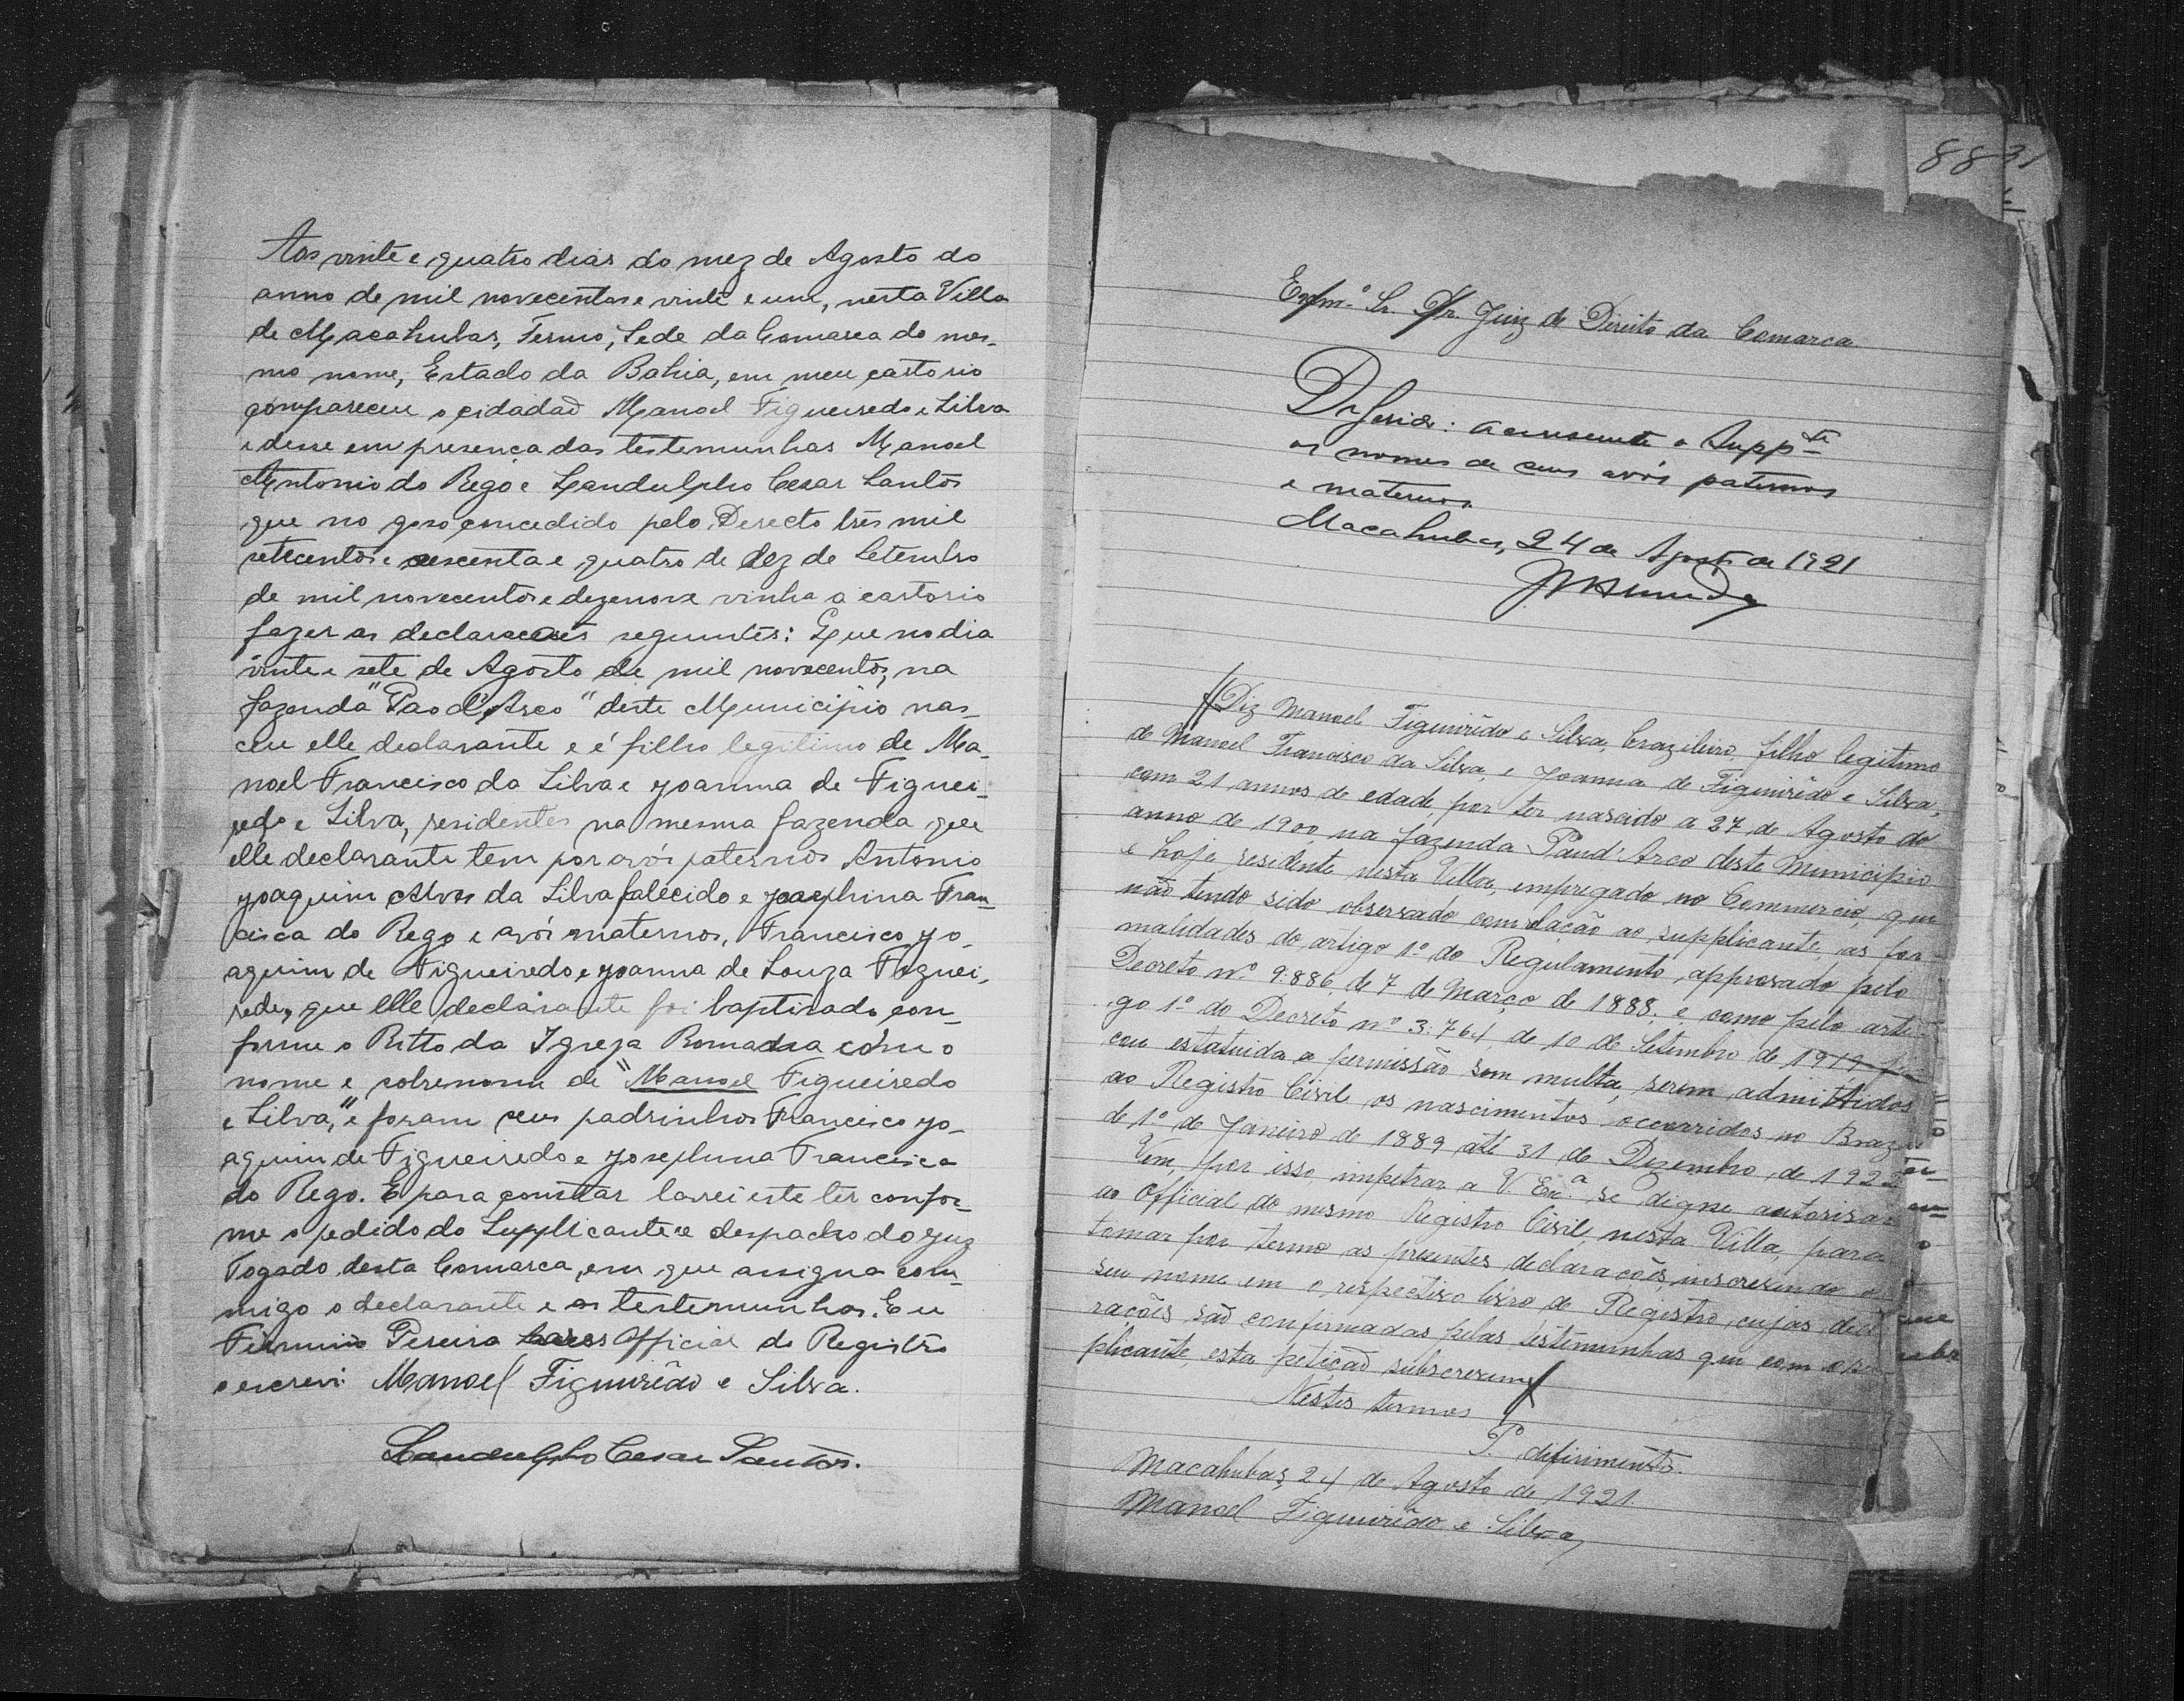 Aos vinte e quatro dias do mez de Agosto do
anno de mil novecentos e vinte e um, nesta Villa
de Macahubas, Termo, Sede da Comarca do mes-
mo nome, Estado da Bahia, em meu cartorio
compareceu o cidadaõ Manoel Figueiredo e Silva
e disse em presença das testemunhas Manoel
Antonio do Rego e Landulpho Cesar Santos
que no goso concedido pelo Decreto três mil
setecentos e sescenta e quatro de dez de Setembro
de mil novecentos e dezenove vinha a cartorio
fazer as declaracões seguintes: Que no dia
vinte e sete de Agosto de mil novecentos, na
fazenda "Pao d'Arco" deste Municipio nas-
ceu elle declarante e é filho legitimo de Ma-
noel Francisco da Silva e Joanna de Figuei-
redo e Silva, residentes na mesma fazenda que
elle declarante tem por avós paternos Antonio
Joaquim Alves da Silva falecido e Josephina Fran-
cisca do Rego e avós maternos, Francisco Jo-
aquim de Figueiredo e Joanna de Souza Figuei-
redo, que elle declarante foi baptisado con-
forme o Ritto da Igreja Romana com o
nome e sobrenome de "Manoel Figueiredo
e Silva," e foram seus padrinhos Francisco Jo-
aquim de Figueiredo e Josephina Francisca
do Rego. E para constar lavrei este ter confor-
me o pedido do Supplicante e despacho do Juiz
Togado desta Comarca, em que assigna com-
migo o declarante e as testemunhas. Eu
Firmino Pereira Official do Registro
o escrevi Manoel Figueirêdo e Silva.
Landulpho Cesar Santos.
88 31
Exmº Sr. Dr. Juiz de Direito da Comarca
Deferido: accrescente o Suppte
os nomes de seus avós paternos
e maternos.
Macahubas, 24 de Agosto de 1921
Diz Manoel Figueirêdo e Silva, brazileiro, filho legitimo
de Manoel Francisco da Silva, e Joanna de Figueirêdo e Silva,
com 21 annos de edade, por ter nascido a 27 de Agosto do
anno de 1900 na fazenda Paud'Arco deste Municipio
e hoje residente nesta Villa, empregado no Commercio, que
não tendo sido observado com relação ao supplicante, as for-
malidades do artigo 1º do Regulamento, approvado pelo
Decreto nº 9:886, de 7 de Março de 1888, e como pelo arti-
go 1º do Decreto nº 3:764, de 10 de Setembro de 1919 fi
cou estatuida a permissão sem multa, serem admittidos
ao Registro Civil os nascimentos occorridos no Braz
de 1º de Janeiro de 1889 até 31 de Dezembro, de 192
Vem, por isso, impetrar a V. Exª se digne autorisar
ao Official do mesmo Registro Civil, nesta Villa, para
tomar por termo as presentes declaracões, inscrevendo o
seu nome em o respectivo livro de Registro, cujas decl
rações saõ confirmadas pelas testemunhas que com o su
plicante, esta petiçaõ subscrevem
Nestes termos
P. diferimento.
Macahubas, 24 de Agosto de 1921.
Manoel Figueirêdo e Silva,